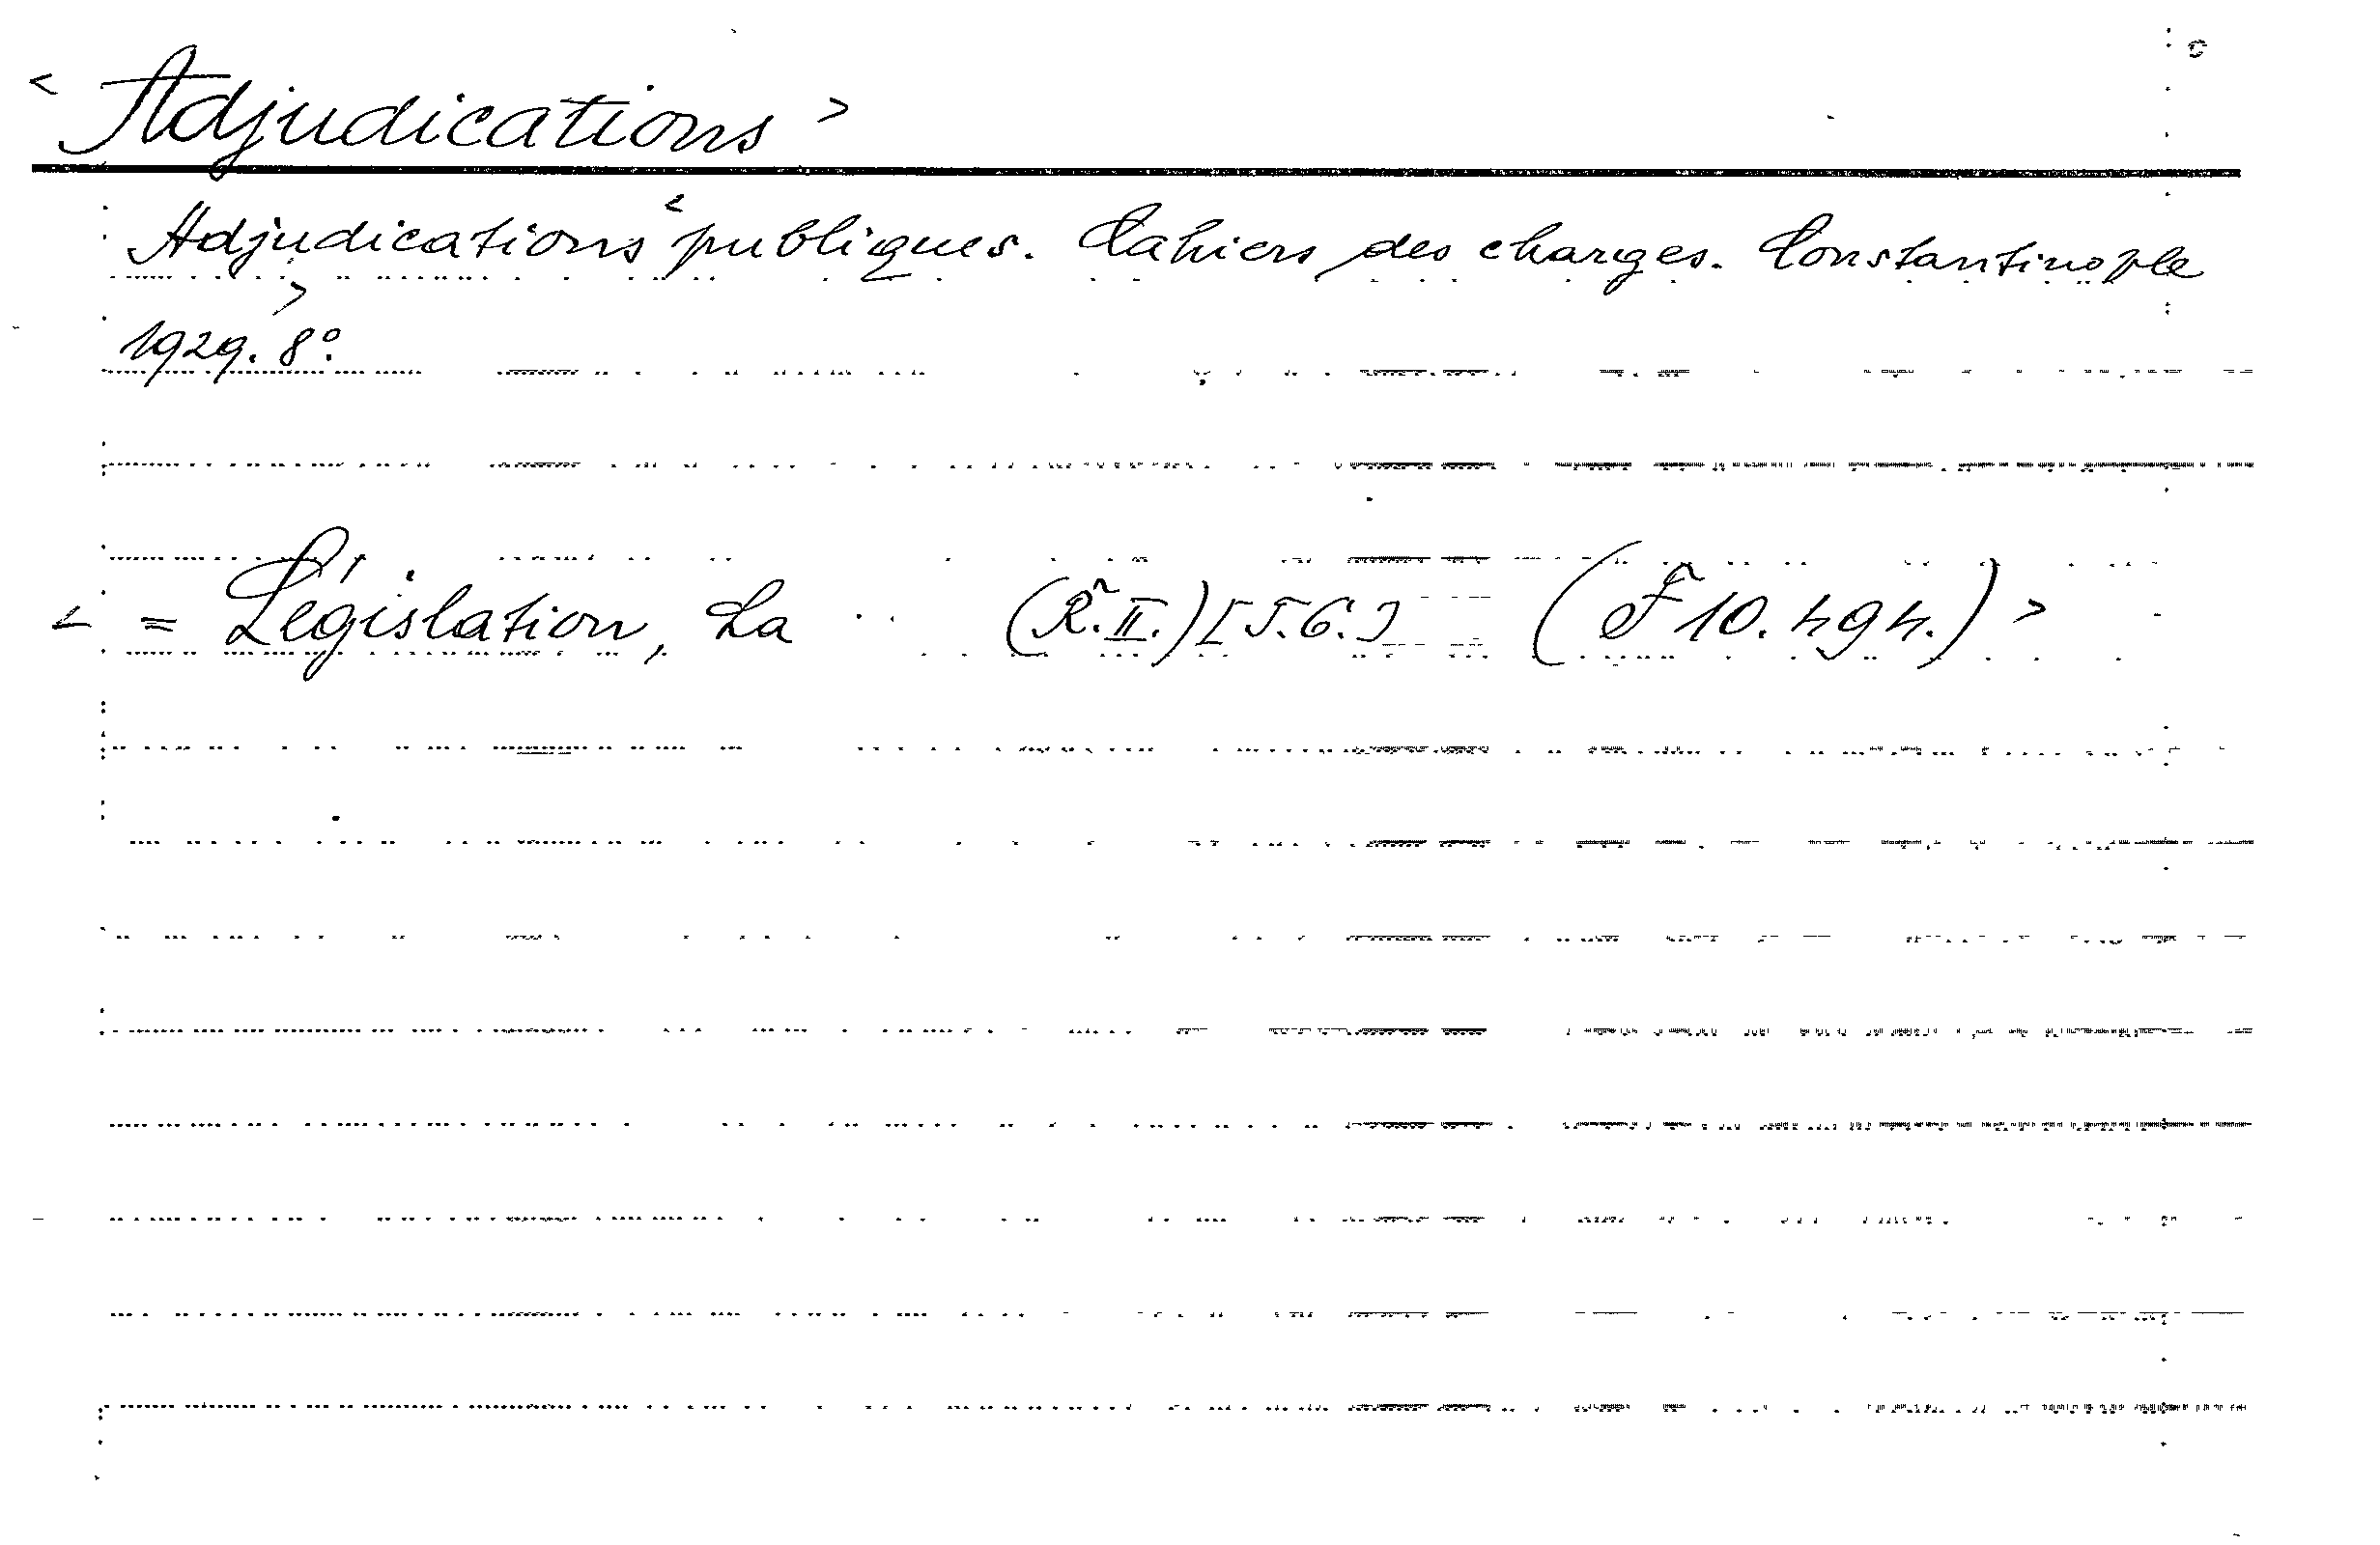 < Adjudications >
Adjudications < publiques. Cahiers des charges. Constantinople
1929. > 8°.
< = Législation, La (R. II.) [T. 6.] (F 10.494.) >